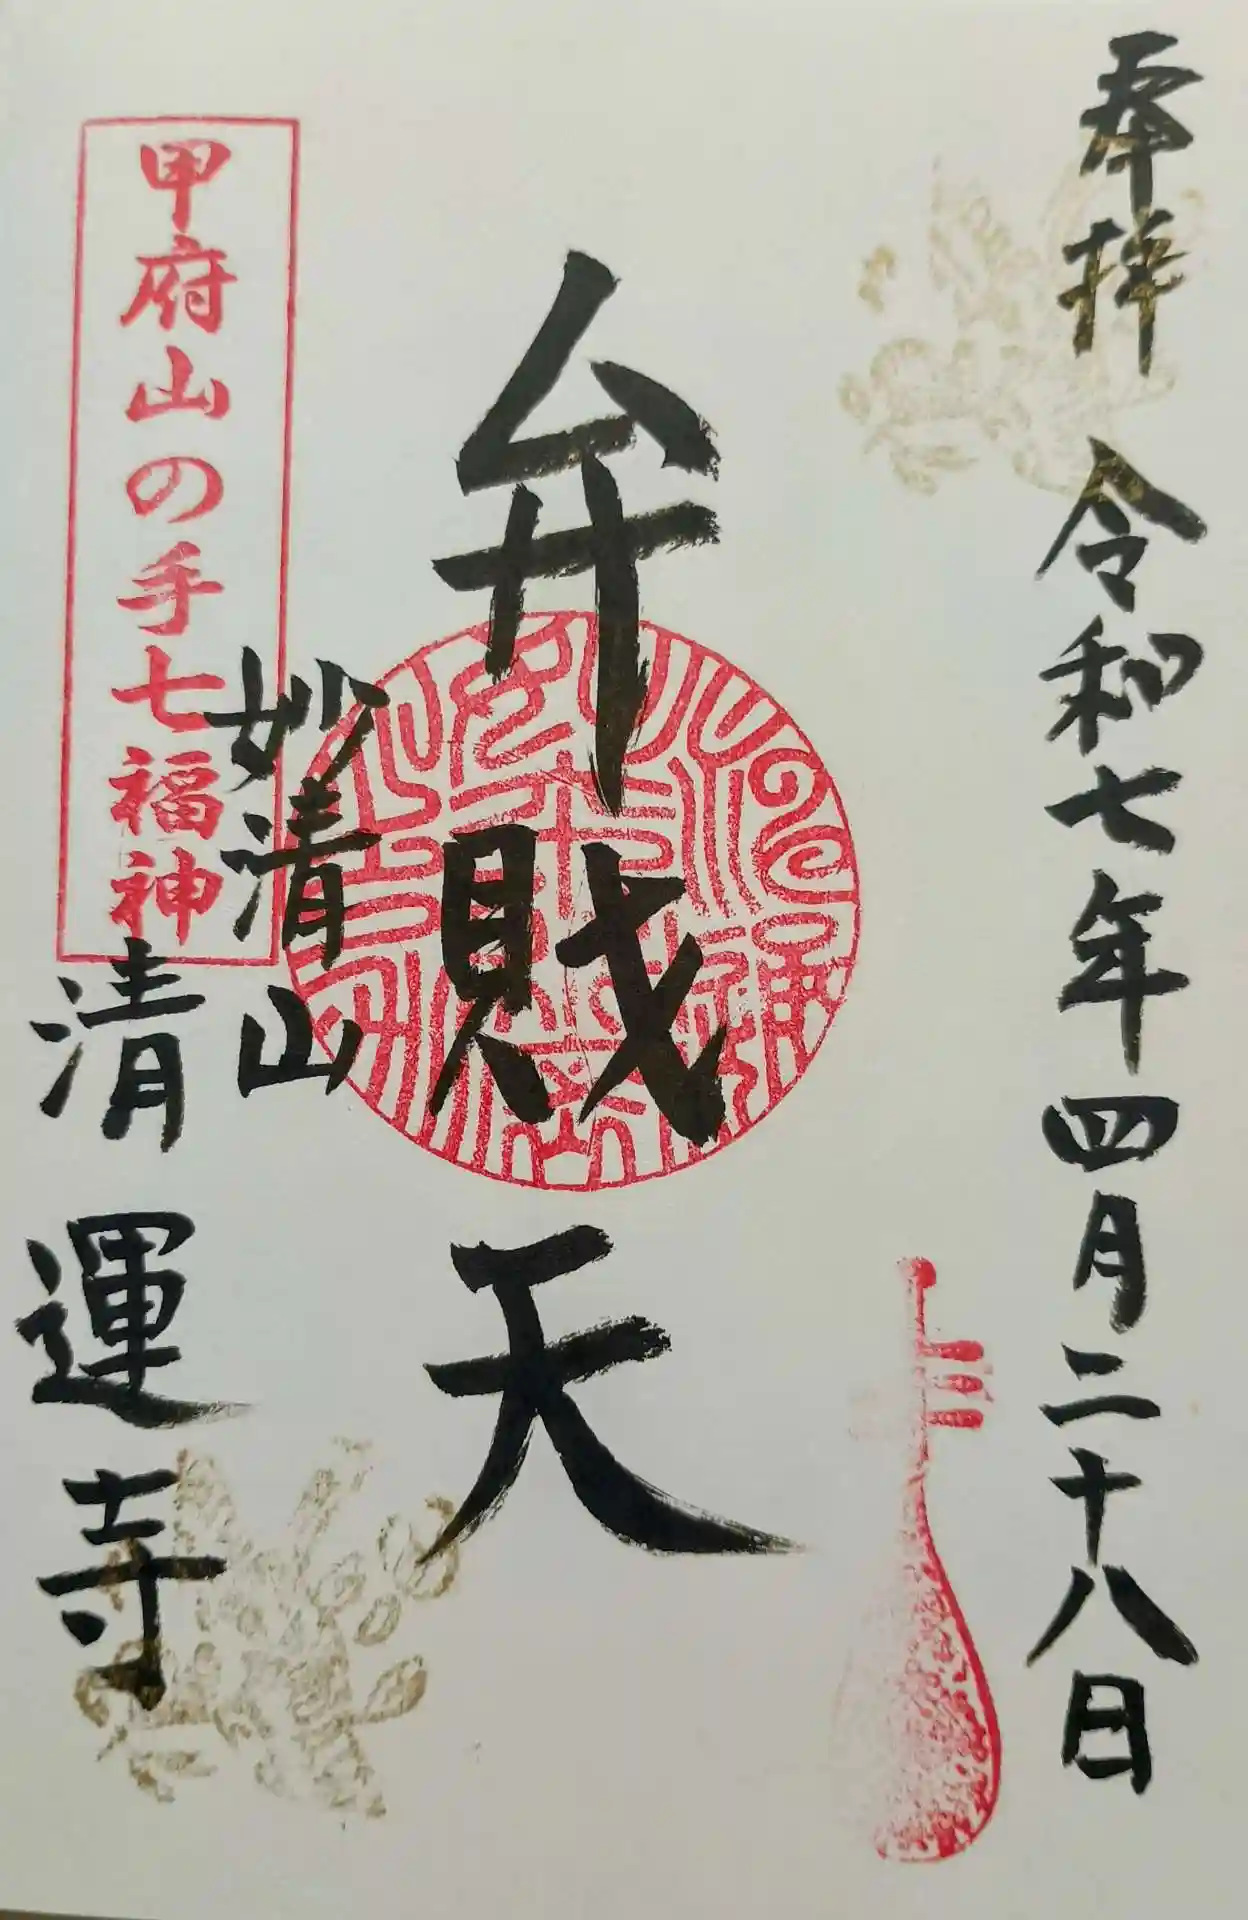 奉拝 令和七年四月二十八日
弁財天
妙清山
清運寺
甲府山の手七福神